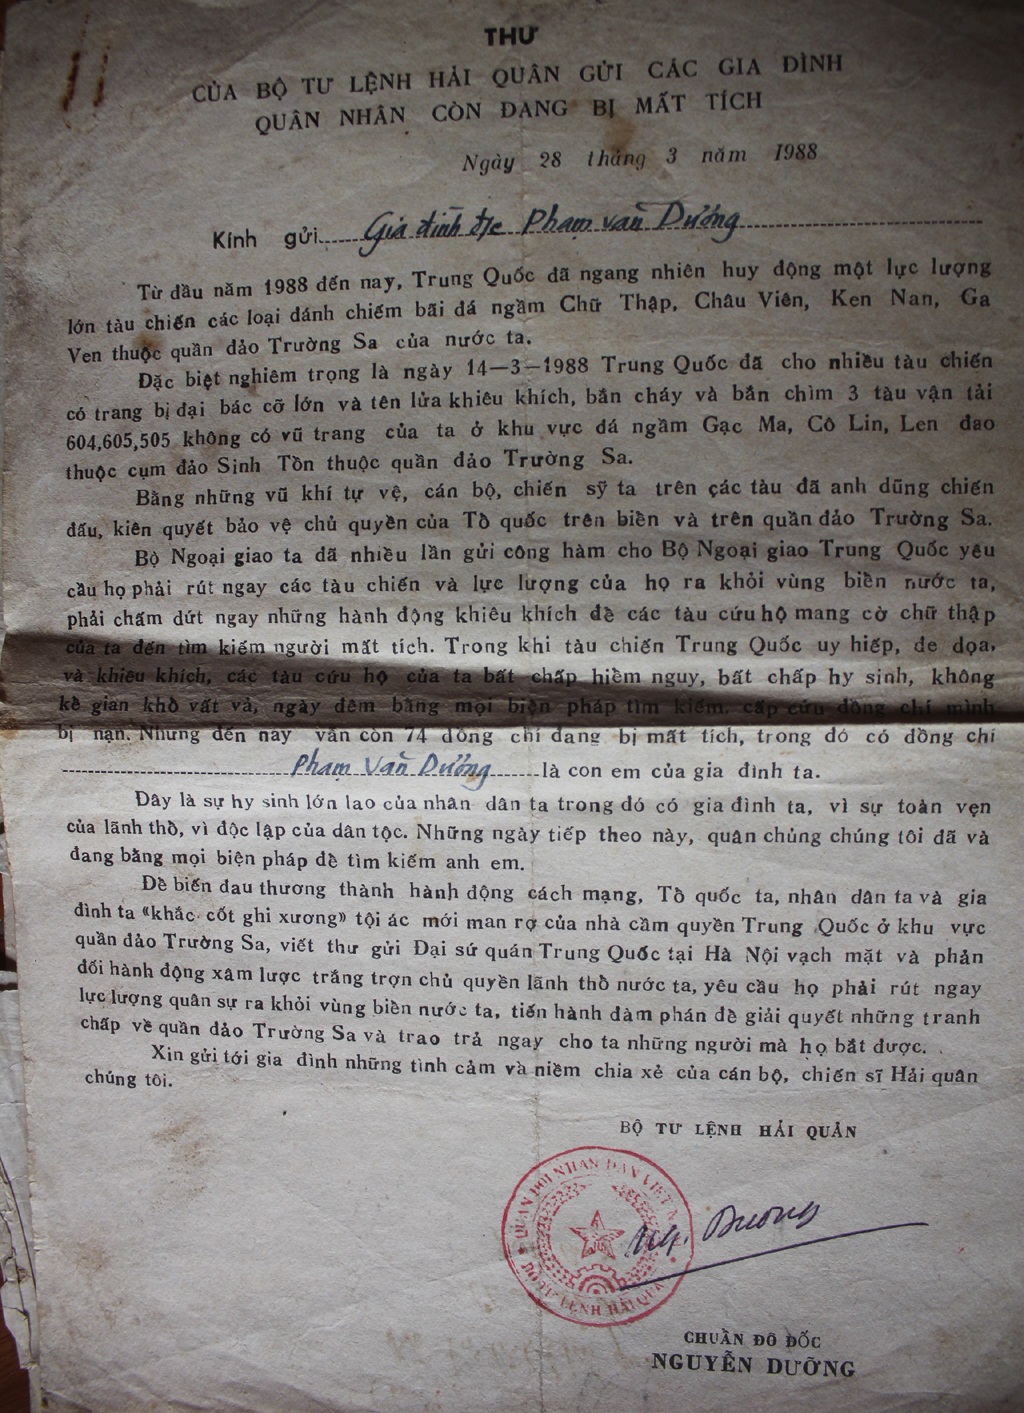 THƯ
CỦA BỘ TƯ LỆNH HẢI QUÂN GỬI CÁC GIA ĐÌNH
QUÂN NHÂN CÒN ĐANG BỊ MẤT TÍCH
Ngày 28 tháng 3 năm 1988
Kính gửi Gia đình đ/c Phạm Văn Dương
Từ đầu năm 1988 đến nay, Trung Quốc đã ngang nhiên huy động một lực lượng
lớn tàu chiến các loại đánh chiếm bãi đá ngầm Chữ Thập, Châu Viên, Ken Nan, Ga
Ven thuộc quần đảo Trường Sa của nước ta.
Đặc biệt nghiêm trọng là ngày 14-3-1988 Trung Quốc đã cho nhiều tàu chiến
có trang bị đại bác cỡ lớn và tên lửa khiêu khích, bắn cháy và bắn chìm 3 tàu vận tải
604,605,505 không có vũ trang của ta ở khu vực đá ngầm Gạc Ma, Cô Lin, Len đao
thuộc cụm đảo Sinh Tồn thuộc quần đảo Trường Sa.
Bằng những vũ khí tự vệ, cán bộ, chiến sỹ ta trên các tàu đã anh dũng chiến
đấu, kiên quyết bảo vệ chủ quyền của Tổ quốc trên biển và trên quần đảo Trường Sa.
Bộ Ngoại giao ta đã nhiều lần gửi công hàm cho Bộ Ngoại giao Trung Quốc yêu
cầu họ phải rút ngay các tàu chiến và lực lượng của họ ra khỏi vùng biển nước ta,
phải chấm dứt ngay những hành động khiêu khích để các tàu cứu hộ mang cờ chữ thập
của ta đến tìm kiếm người mất tích. Trong khi tàu chiến Trung Quốc uy hiếp, đe dọa,
và khiêu khích, các tàu cứu hộ của ta bất chấp hiểm nguy, bất chấp hy sinh, không
kể gian khổ vất vả, ngày đêm bằng mọi biện pháp tìm kiếm, cấp cứu đồng chí mình
bị nạn. Nhưng đến nay vẫn còn 74 đồng chí đang bị mất tích, trong đó có đồng chí
Phạm Văn Dương là con em của gia đình ta.
Đây là sự hy sinh lớn lao của nhân dân ta trong đó có gia đình ta, vì sự toàn vẹn
của lãnh thổ, vì độc lập của dân tộc. Những ngày tiếp theo này, quân chủng chúng tôi đã và
đang bằng mọi biện pháp để tìm kiếm anh em.
Để biến đau thương thành hành động cách mạng, Tổ quốc ta, nhân dân ta và gia
đình ta «khắc cốt ghi xương» tội ác mới man rợ của nhà cầm quyền Trung Quốc ở khu vực
quần đảo Trường Sa, viết thư gửi Đại sứ quán Trung Quốc tại Hà Nội vạch mặt và phản
đối hành động xâm lược trắng trợn chủ quyền lãnh thổ nước ta, yêu cầu họ phải rút ngay
lực lượng quân sự ra khỏi vùng biển nước ta, tiến hành đàm phán để giải quyết những tranh
chấp về quần đảo Trường Sa và trao trả ngay cho ta những người mà họ bắt được.
Xin gửi tới gia đình những tình cảm và niềm chia xẻ của cán bộ, chiến sĩ Hải quân
chúng tôi.
BỘ TƯ LỆNH HẢI QUÂN
QUÂN ĐỘI NHÂN DÂN VIỆT N
BỘ TƯ LỆNH HẢI QUÂ
Ng. Dương
CHUẨN ĐÔ ĐỐC
NGUYỄN DƯỠNG